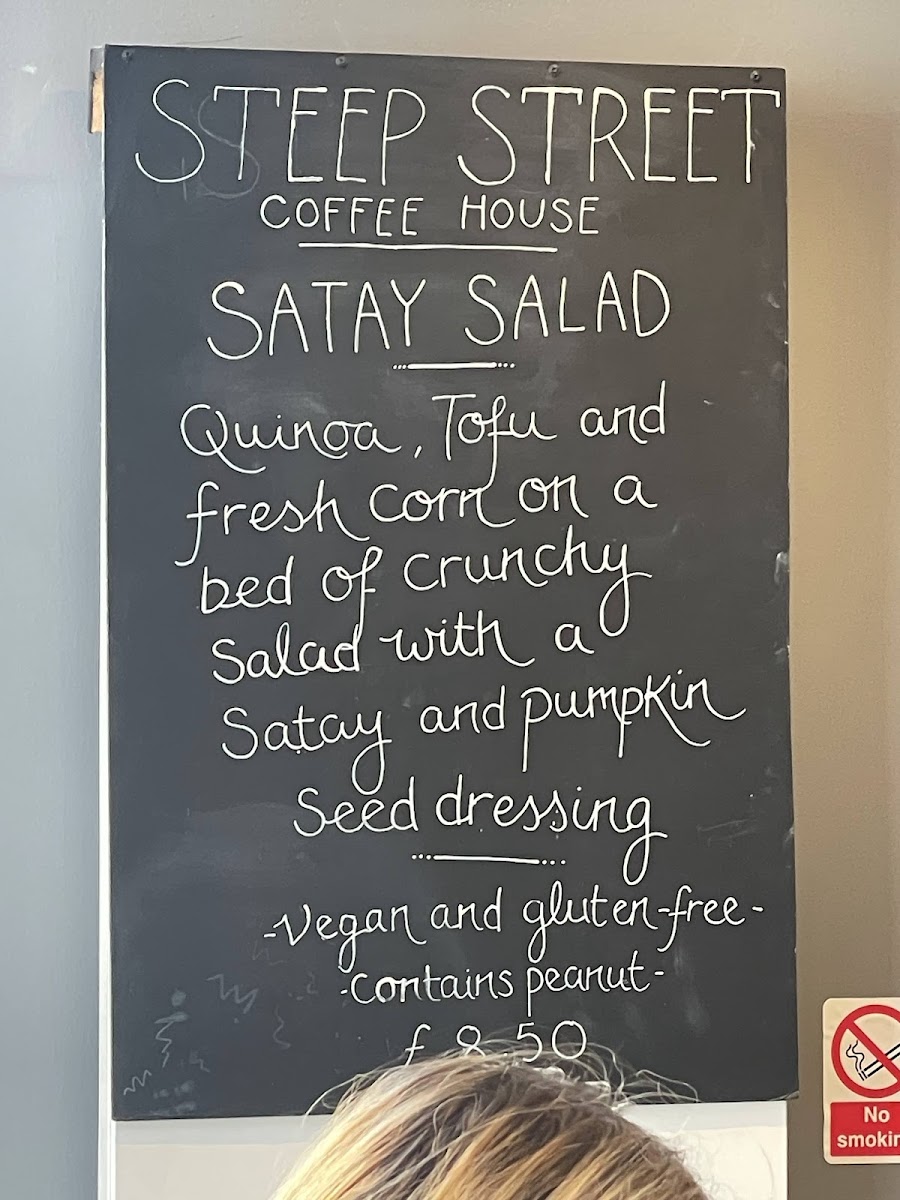 STEEP STREET
COFFEE HOUSE
SATAY SALAD
Quinoa, Tofu and
fresh corn on a
bed of crunchy
Salad with a
Satay and pumpkin
Seed dressing
-Vegan and gluten-free-
-contains peanut-
£8.50
No
smokin